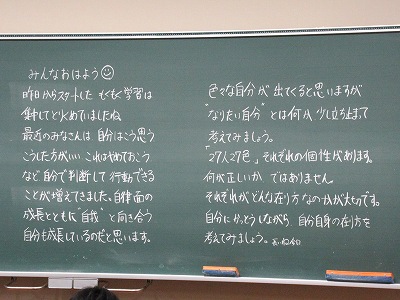 みんなおはよう
昨日からスタートした もくもく学習は
集中してと火めていましたね
最近のみなさんは 自分はこう思う
こうした方がいい これはやめておこう
など自分で判断して行動できる
ことが増えてきました。自律面の
成長とともに"自我"と向き合う
自分も成長しているのだと思います。
色々な自分が出てくると思いますが
"なりたい自分"とは何か 少し立ち止まって
考えてみましょう。
「27人27色」それぞれの個性があります。
何が正しいか ではありません。
それぞれがどんな在り方なのかが大切です。
自分にかっとうしながら、自分自身の在り方を
考えてみましょう。